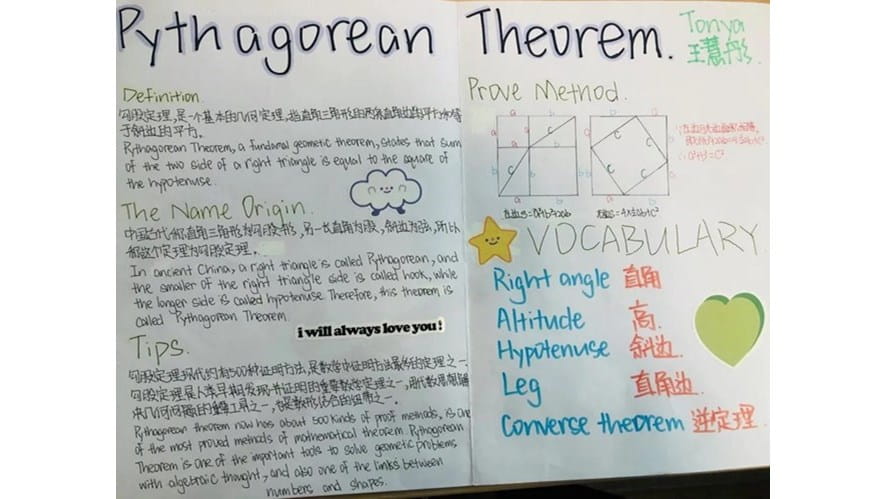 Pythagorean Theorem.
Tonya
王慧彤
Definition.
勾股定理,是一个基本的几何定理,指直角三角形的两条直角边的平方和等
于斜边的平方。
Pythagorean Theorem, a fundamal geometic theorem, states that sum
of the two side of a right triangle is equal to the square of
the hypotenuse.
The Name Origin.
中国古代称直角三角形为勾股形,另一长直角为股,斜边为弦,所以
称这个定理为勾股定理。
In ancient China, a right triangle is called Pythagorean, and
the smaller of the right triangle side is called hook, while
the longer side is called hypotenuse. Therefore, this theorem is
called Pythagorean Theorem.
i will always love you!
Tips.
勾股定理现代约有500种证明方法,是数学中证明方法最多的定理之一。
勾股定理是人类早期发现并证明的重要数学定理之一,用代数思想解
决几何问题的重要工具之一,也是数形结合的纽带之一。
Pythagorean theorem now has about 500 kinds of proof methods, is one
of the most proved metods of mathematical theorem. Pythagorean
Theorem is one of the important tools to solve geometic problems
with algebraic thought, and also one of the links between
numbers and shapes.
Prove Method.
a b
a a
c
b b
c
a b
c
c
c
c
VOCABULARY.
Right angle 直角
Altitude 高.
Hypotenuse 斜边.
Leg 直角边.
Converse theorem 逆定理.